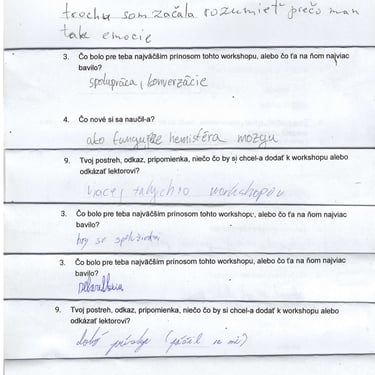 trochu som začala rozumieť prečo mam
také emocie
3. Čo bolo pre teba najväčším prínosom tohto workshopu, alebo čo ťa na ňom najviac
bavilo?
spolupráca, konverzácie
4. Čo nové si sa naučil-a?
ako funguje hemisféra mozgu
9. Tvoj postreh, odkaz, pripomienka, niečo čo by si chcel-a dodať k workshopu alebo
odkázať lektorovi?
viacej takýchto workshopov
3. Čo bolo pre teba najväčším prínosom tohto workshopu, alebo čo ťa na ňom najviac
bavilo?
hry so
3. Čo bolo pre teba najväčším prínosom tohto workshopu, alebo čo ťa na ňom najviac
bavilo?
9. Tvoj postreh, odkaz, pripomienka, niečo čo by si chcel-a dodať k workshopu alebo
odkázať lektorovi?